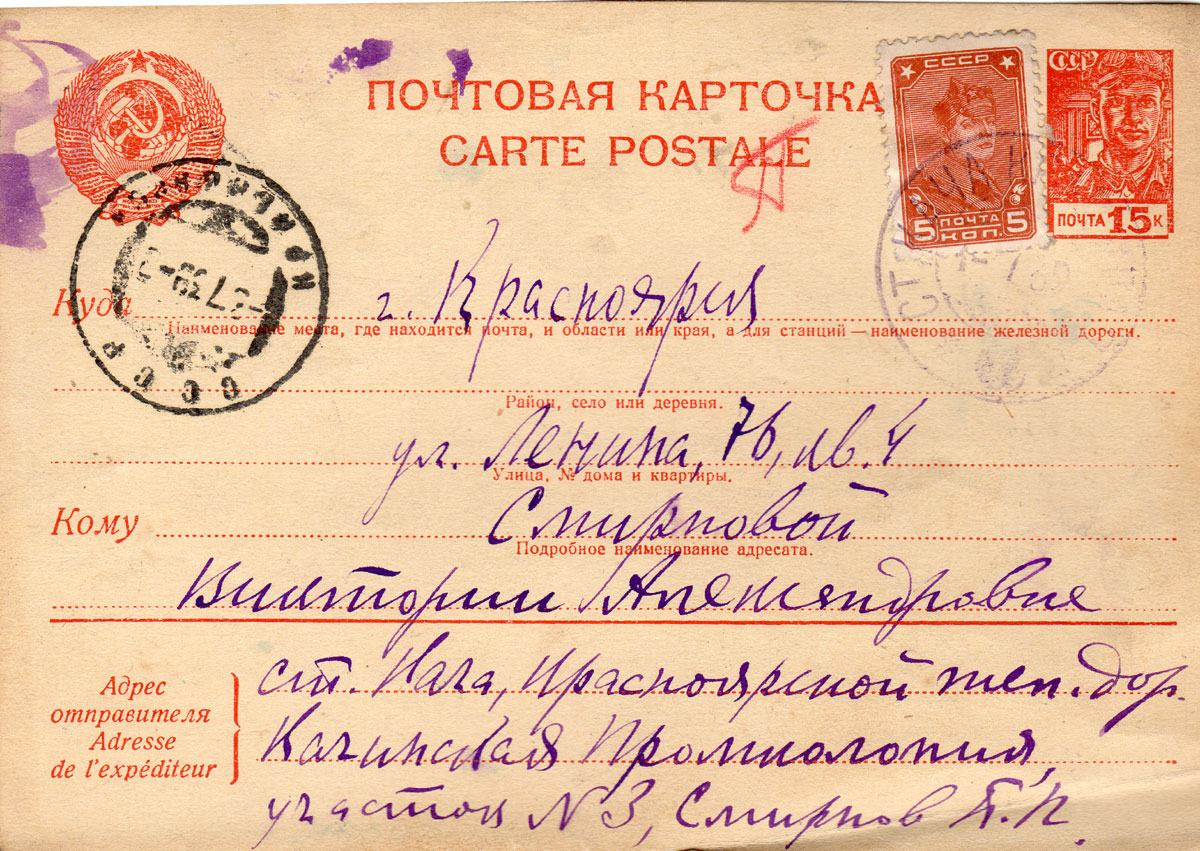 ПОЧТОВАЯ КАРТОЧКА
CARTE POSTALE
СССР
ПОЧТА
5 КОП. 5
СССР
ПОЧТА 15 К
КРАСНОЯРСК
СССР
Куда г. Красноярск
Наименование места, где находится почта, и области или края, а для станций — наименование железной дороги.
Район, село или деревня.
ул. Ленина, 76, кв. 4
Улица, № дома и квартиры.
Кому Смирновой
Подробное наименование адресата.
Виктории Александровне
Адрес отправителя
Adresse de l'expéditeur
ст. Кача, Красноярской жел. дор.
Качинская Промколония,
участок N 3, Смирнов П. К.